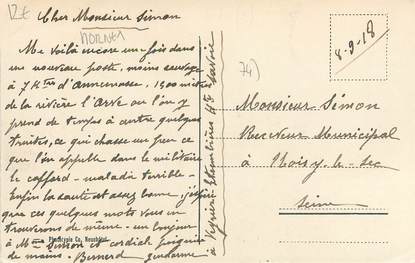 12€
Cher Monsieur Simon
MORNEX
Me voilà encore une fois dans
un nouveau poste, moins sauvage
à 7 Ktres d'Annemasse. 1500 mètres
de la rivière l'Arve où l'on y
prend de temps à autre quelques
truites, ce qui chasse un peu ce
que l'on appelle dans le militaire
le caffard - maladie terrible -
Enfin la santé est assez bonne, j'espère
que ces quelques mots vous en
trouverons de même - un bonjour
à Mme Simon et cordial poignée
de mains. Bernerd gendarme
à Veyrier Etrembières Hte Savoie
Phototypie Co, Neuchâtel
74)
8-9-18
Monsieur Simon
Receveur Municipal
à Noisy-le-Sec
Seine